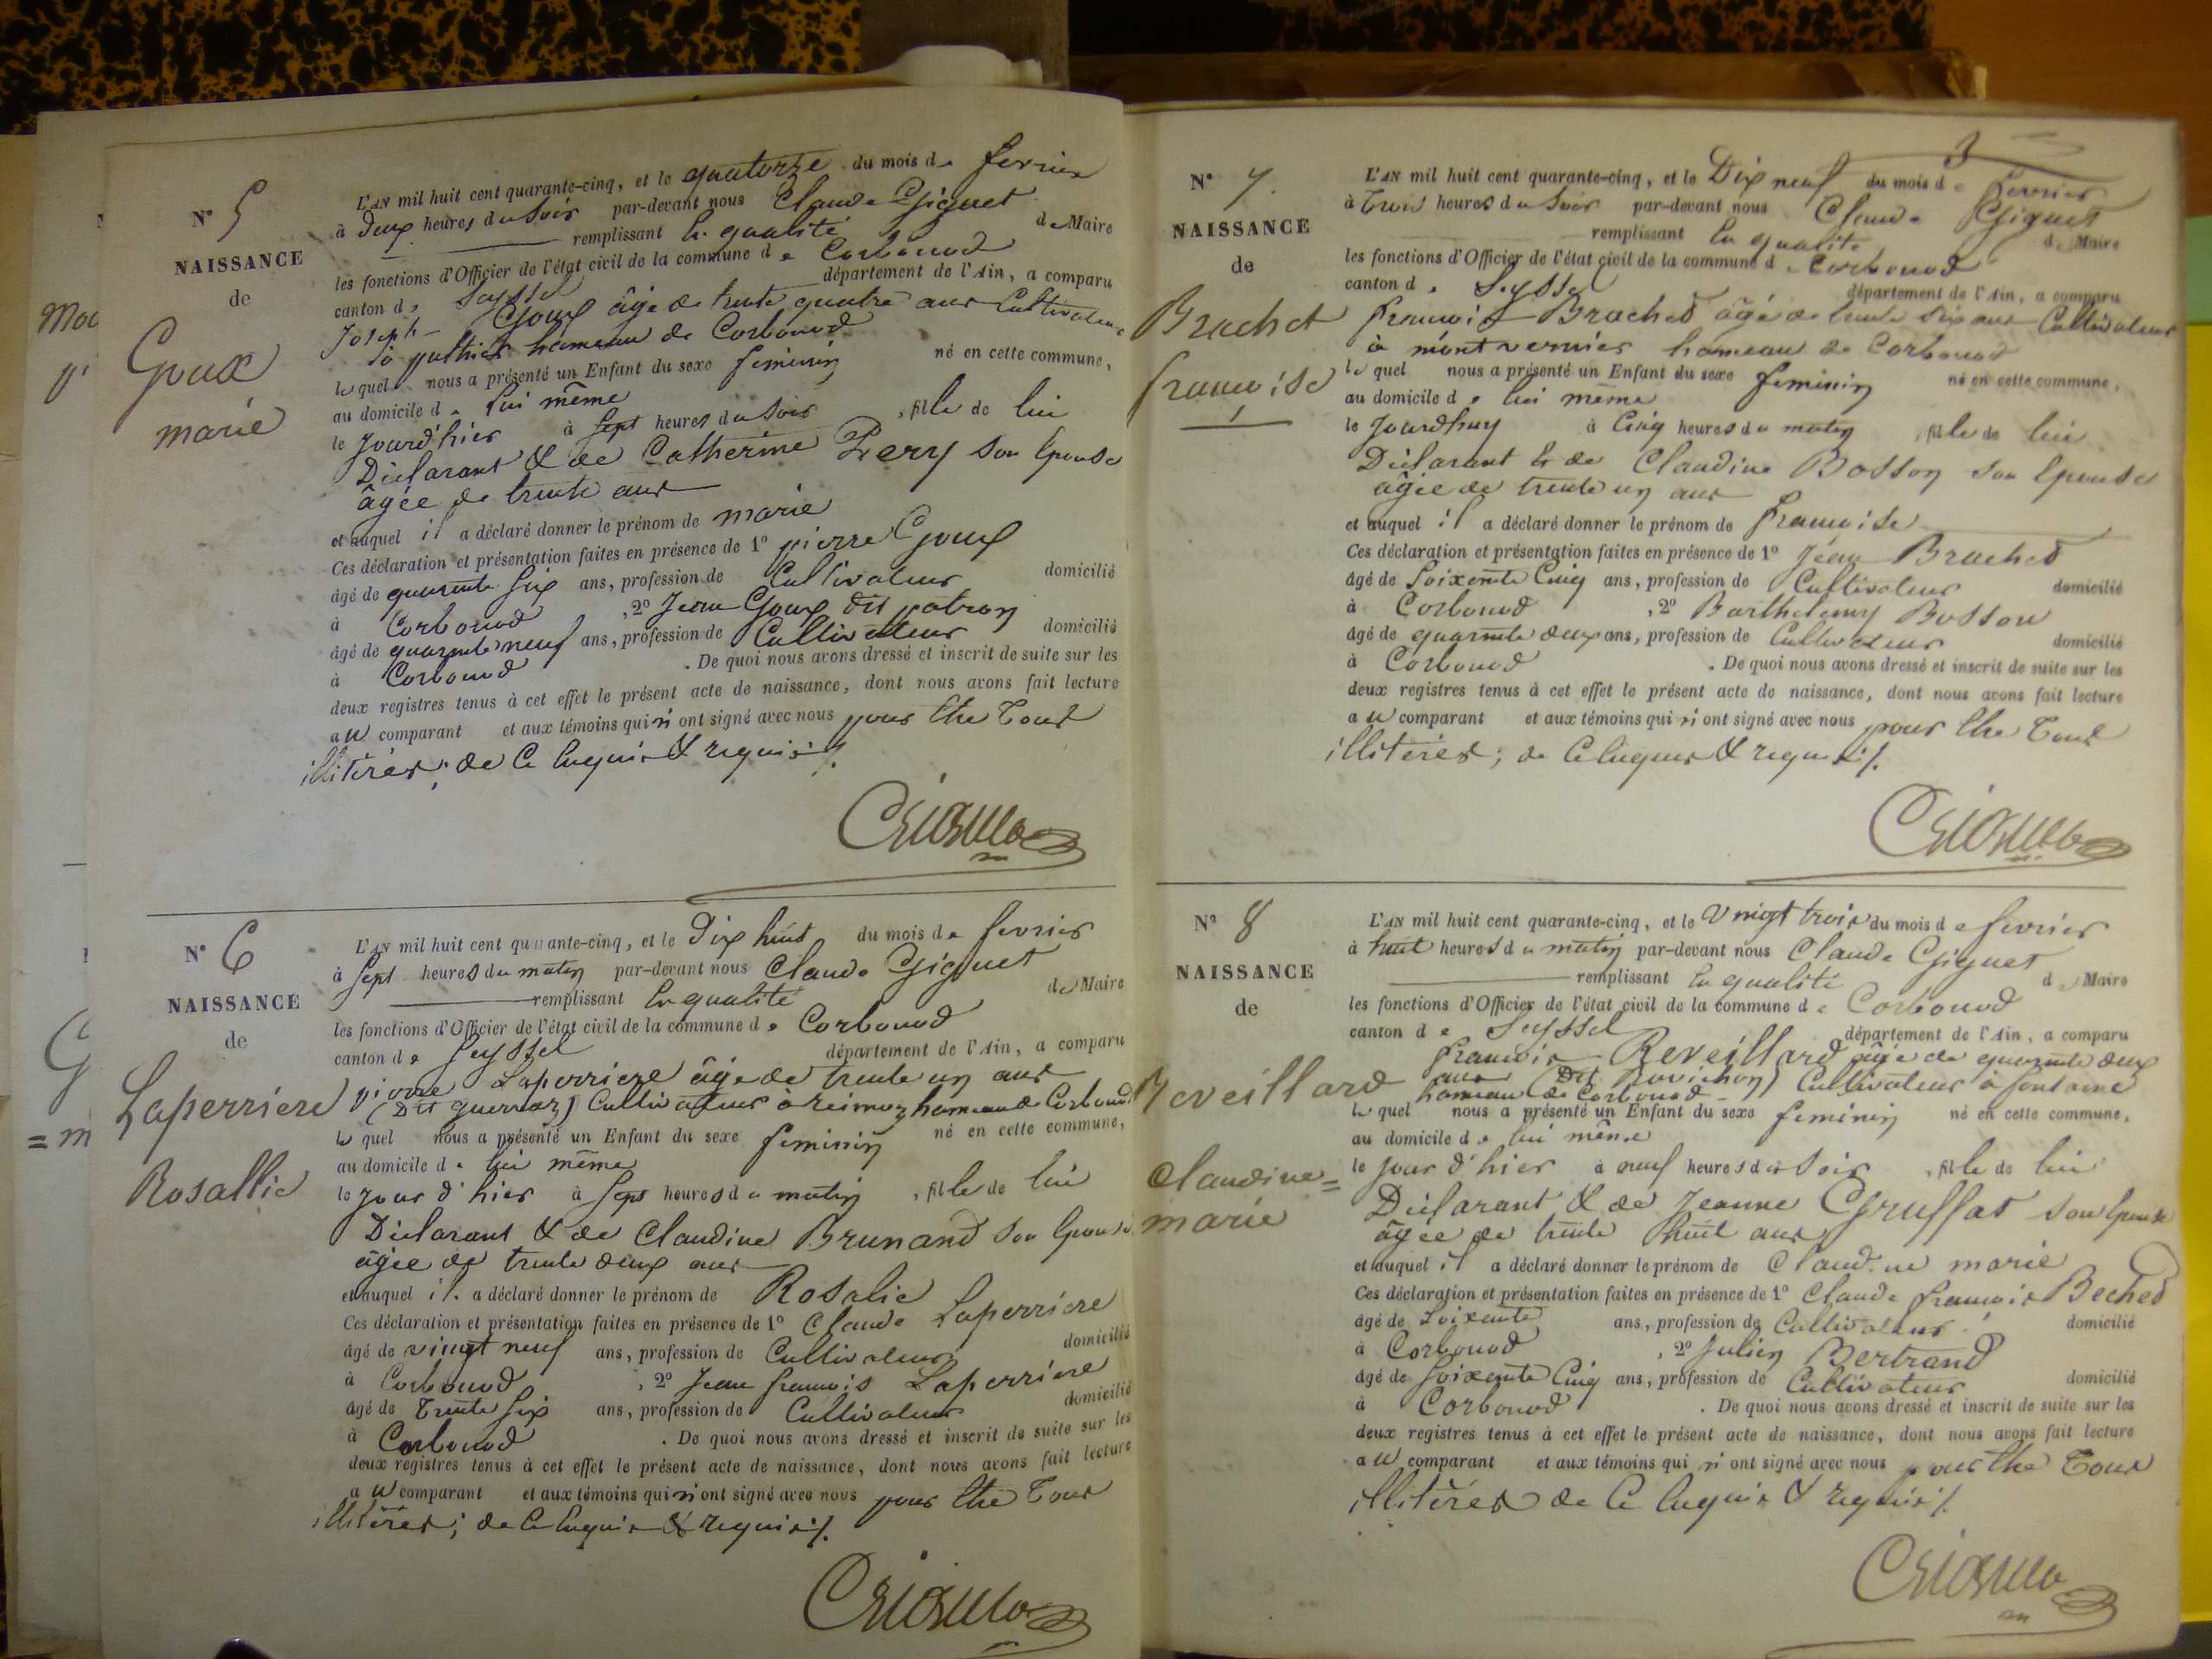 N° 5
NAISSANCE
de
Goux
marie
L'AN mil huit cent quarante-cinq, et le quatorze du mois de fevrier
à deux heures du Soir par-devant nous Claude Giguet
remplissant la qualité de Maire
les fonctions d'Officier de l'état civil de la commune de Corbonod
canton de Seyssel département de l'Ain, a comparu
Joseph Goux âgé de trente quatre ans Cultivateur
à hameau de Corbonod
le quel nous a présenté un Enfant du sexe feminin né en cette commune,
au domicile de lui même
le jourd'hier à Sept heures du Soir , fille de lui
Déclarant & de Catherine Pery son Epouse
âgée de trente ans
et auquel il a déclaré donner le prénom de marie
Ces déclaration et présentation faites en présence de 1° pierre Goux
âgé de quarante Six ans, profession de Cultivateur domicilié
à Corbonod , 2° Jean Goux dit patron
âgé de quarante neuf ans, profession de Cultivateur domicilié
à Corbonod . De quoi nous avons dressé et inscrit de suite sur les
deux registres tenus à cet effet le présent acte de naissance, dont nous avons fait lecture
au comparant et aux témoins qui n'ont signé avec nous pour être Tous
illitérés; de Ce Enquis & requis ./.
N° 6
NAISSANCE
de
Laperriere
Rosallie
L'AN mil huit cent quarante-cinq, et le Dix huit du mois de fevrier
à Sept heures du matin par-devant nous Claude Giguet
remplissant la qualité de Maire
les fonctions d'Officier de l'état civil de la commune de Corbonod
canton de Seyssel département de l'Ain, a comparu
pierre Laperriere âgé de trente un ans
(Dit guerraz) Cultivateur à reimoz hameau de Corbonod
le quel nous a présenté un Enfant du sexe feminin né en cette commune,
au domicile de lui même
le jour d'hier à Sept heures du matin , fille de lui
Déclarant & de Claudine Brunand son Epouse
âgée de trente deux ans
et auquel il a déclaré donner le prénom de Rosalie
Ces déclaration et présentation faites en présence de 1° Claude Laperriere
âgé de vingt neuf ans, profession de Cultivateur domicilié
à Corbonod , 2° Jean francois Laperriere
âgé de Trente Six ans, profession de Cultivateur domicilié
à Corbonod . De quoi nous avons dressé et inscrit de suite sur les
deux registres tenus à cet effet le présent acte de naissance, dont nous avons fait lecture
au comparant et aux témoins qui n'ont signé avec nous pour être Tous
illitérés; de Ce Enquis & requis ./.
3
N° 7
NAISSANCE
de
Brachet
francoise
L'AN mil huit cent quarante-cinq, et le Dix neuf du mois de fevrier
à Trois heures du Soir par-devant nous Claude Giguet
remplissant la qualité de Maire
les fonctions d'Officier de l'état civil de la commune de Corbonod
canton de Seyssel département de l'Ain, a comparu
francois Brachet âgé de trente Six ans Cultivateur
à montvernier hameau de Corbonod
le quel nous a présenté un Enfant du sexe feminin né en cette commune,
au domicile de lui même
le jourdhuy à Cinq heures du matin , fille de lui
Déclarant & de Claudine Bosson son Epouse
âgée de trente un ans
et auquel il a déclaré donner le prénom de francoise
Ces déclaration et présentation faites en présence de 1° Jean Brachet
âgé de Soixente Cinq ans, profession de Cultivateur domicilié
à Corbonod , 2° Barthelemy Bosson
âgé de quarante deux ans, profession de Cultivateur domicilié
à Corbonod . De quoi nous avons dressé et inscrit de suite sur les
deux registres tenus à cet effet le présent acte de naissance, dont nous avons fait lecture
au comparant et aux témoins qui n'ont signé avec nous pour être Tous
illitérés; de Ce Enquis & requis ./.
N° 8
NAISSANCE
de
Reveillard
Claudine=
marie
L'AN mil huit cent quarante-cinq, et le Vingt trois du mois de fevrier
à huit heures du matin par-devant nous Claude Giguet
remplissant la qualité de Maire
les fonctions d'Officier de l'état civil de la commune de Corbonod
canton de Seyssel département de l'Ain, a comparu
francois Reveillard âgé de quarante deux
ans (Dit Rovichon) Cultivateur à fontaine
hameau de Corbonod
le quel nous a présenté un Enfant du sexe feminin né en cette commune,
au domicile de lui même
le jour d'hier à neuf heures du Soir , fille de lui
Déclarant & de Jeanne Gruffat son Epouse
âgée de trente huit ans
et auquel il a déclaré donner le prénom de Claudine marie
Ces déclaration et présentation faites en présence de 1° Claude francois Bechet
âgé de Soixente ans, profession de Cultivateur domicilié
à Corbonod , 2° Julien Bertrand
âgé de Soixente Cinq ans, profession de Cultivateur domicilié
à Corbonod . De quoi nous avons dressé et inscrit de suite sur les
deux registres tenus à cet effet le présent acte de naissance, dont nous avons fait lecture
au comparant et aux témoins qui n'ont signé avec nous pour être Tous
illitérés de Ce Enquis & requis ./.